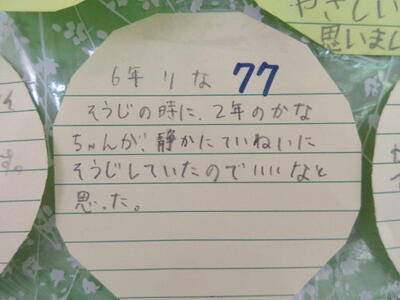 6年 りな 77
そうじの時に、2年のかな
ちゃんが、静かにていねいに
そうじしていたのでいいなと
思った。
やさしい
思いまし
す。